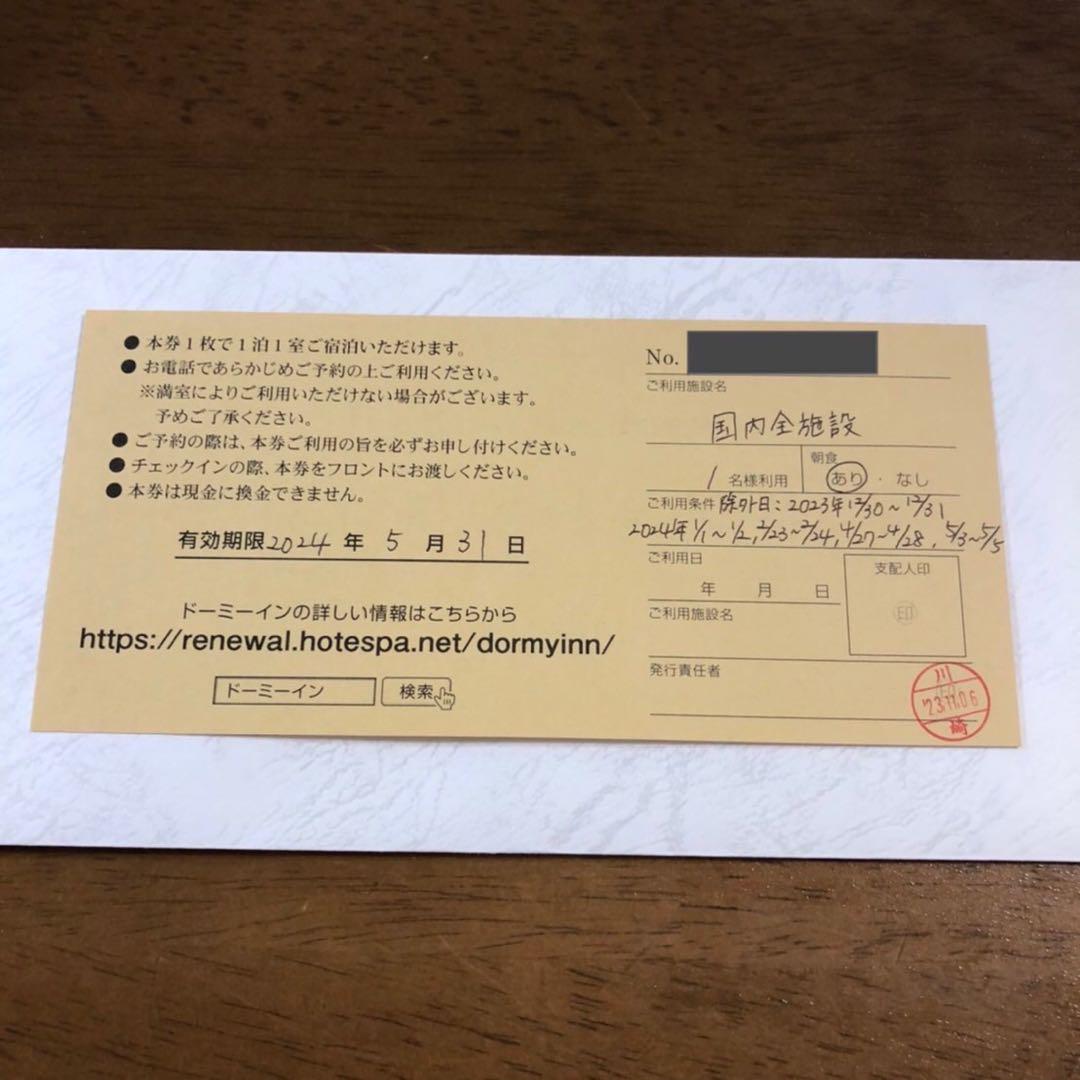 ●本券1枚で1泊1室ご宿泊いただけます。
●お電話であらかじめご予約の上ご利用ください。
※満室によりご利用いただけない場合がございます。
予めご了承ください。
●ご予約の際は、本券ご利用の旨を必ずお申し付けください。
●チェックインの際、本券をフロントにお渡しください。
●本券は現金に換金できません。
有効期限2024年5月31日
ドーミーインの詳しい情報はこちらから
https://renewal.hotespa.net/dormyinn/
ドーミーイン 検索
No.
ご利用施設名
国内全施設
1名様利用
朝食
あり・なし
ご利用条件 除外日:2023年12/30~12/31
2024年1/1~1/2,2/23~2/24,4/27~4/28,5/3~5/5
ご利用日
年 月 日
支配人印
印
ご利用施設名
発行責任者
川
'23.11.06
崎